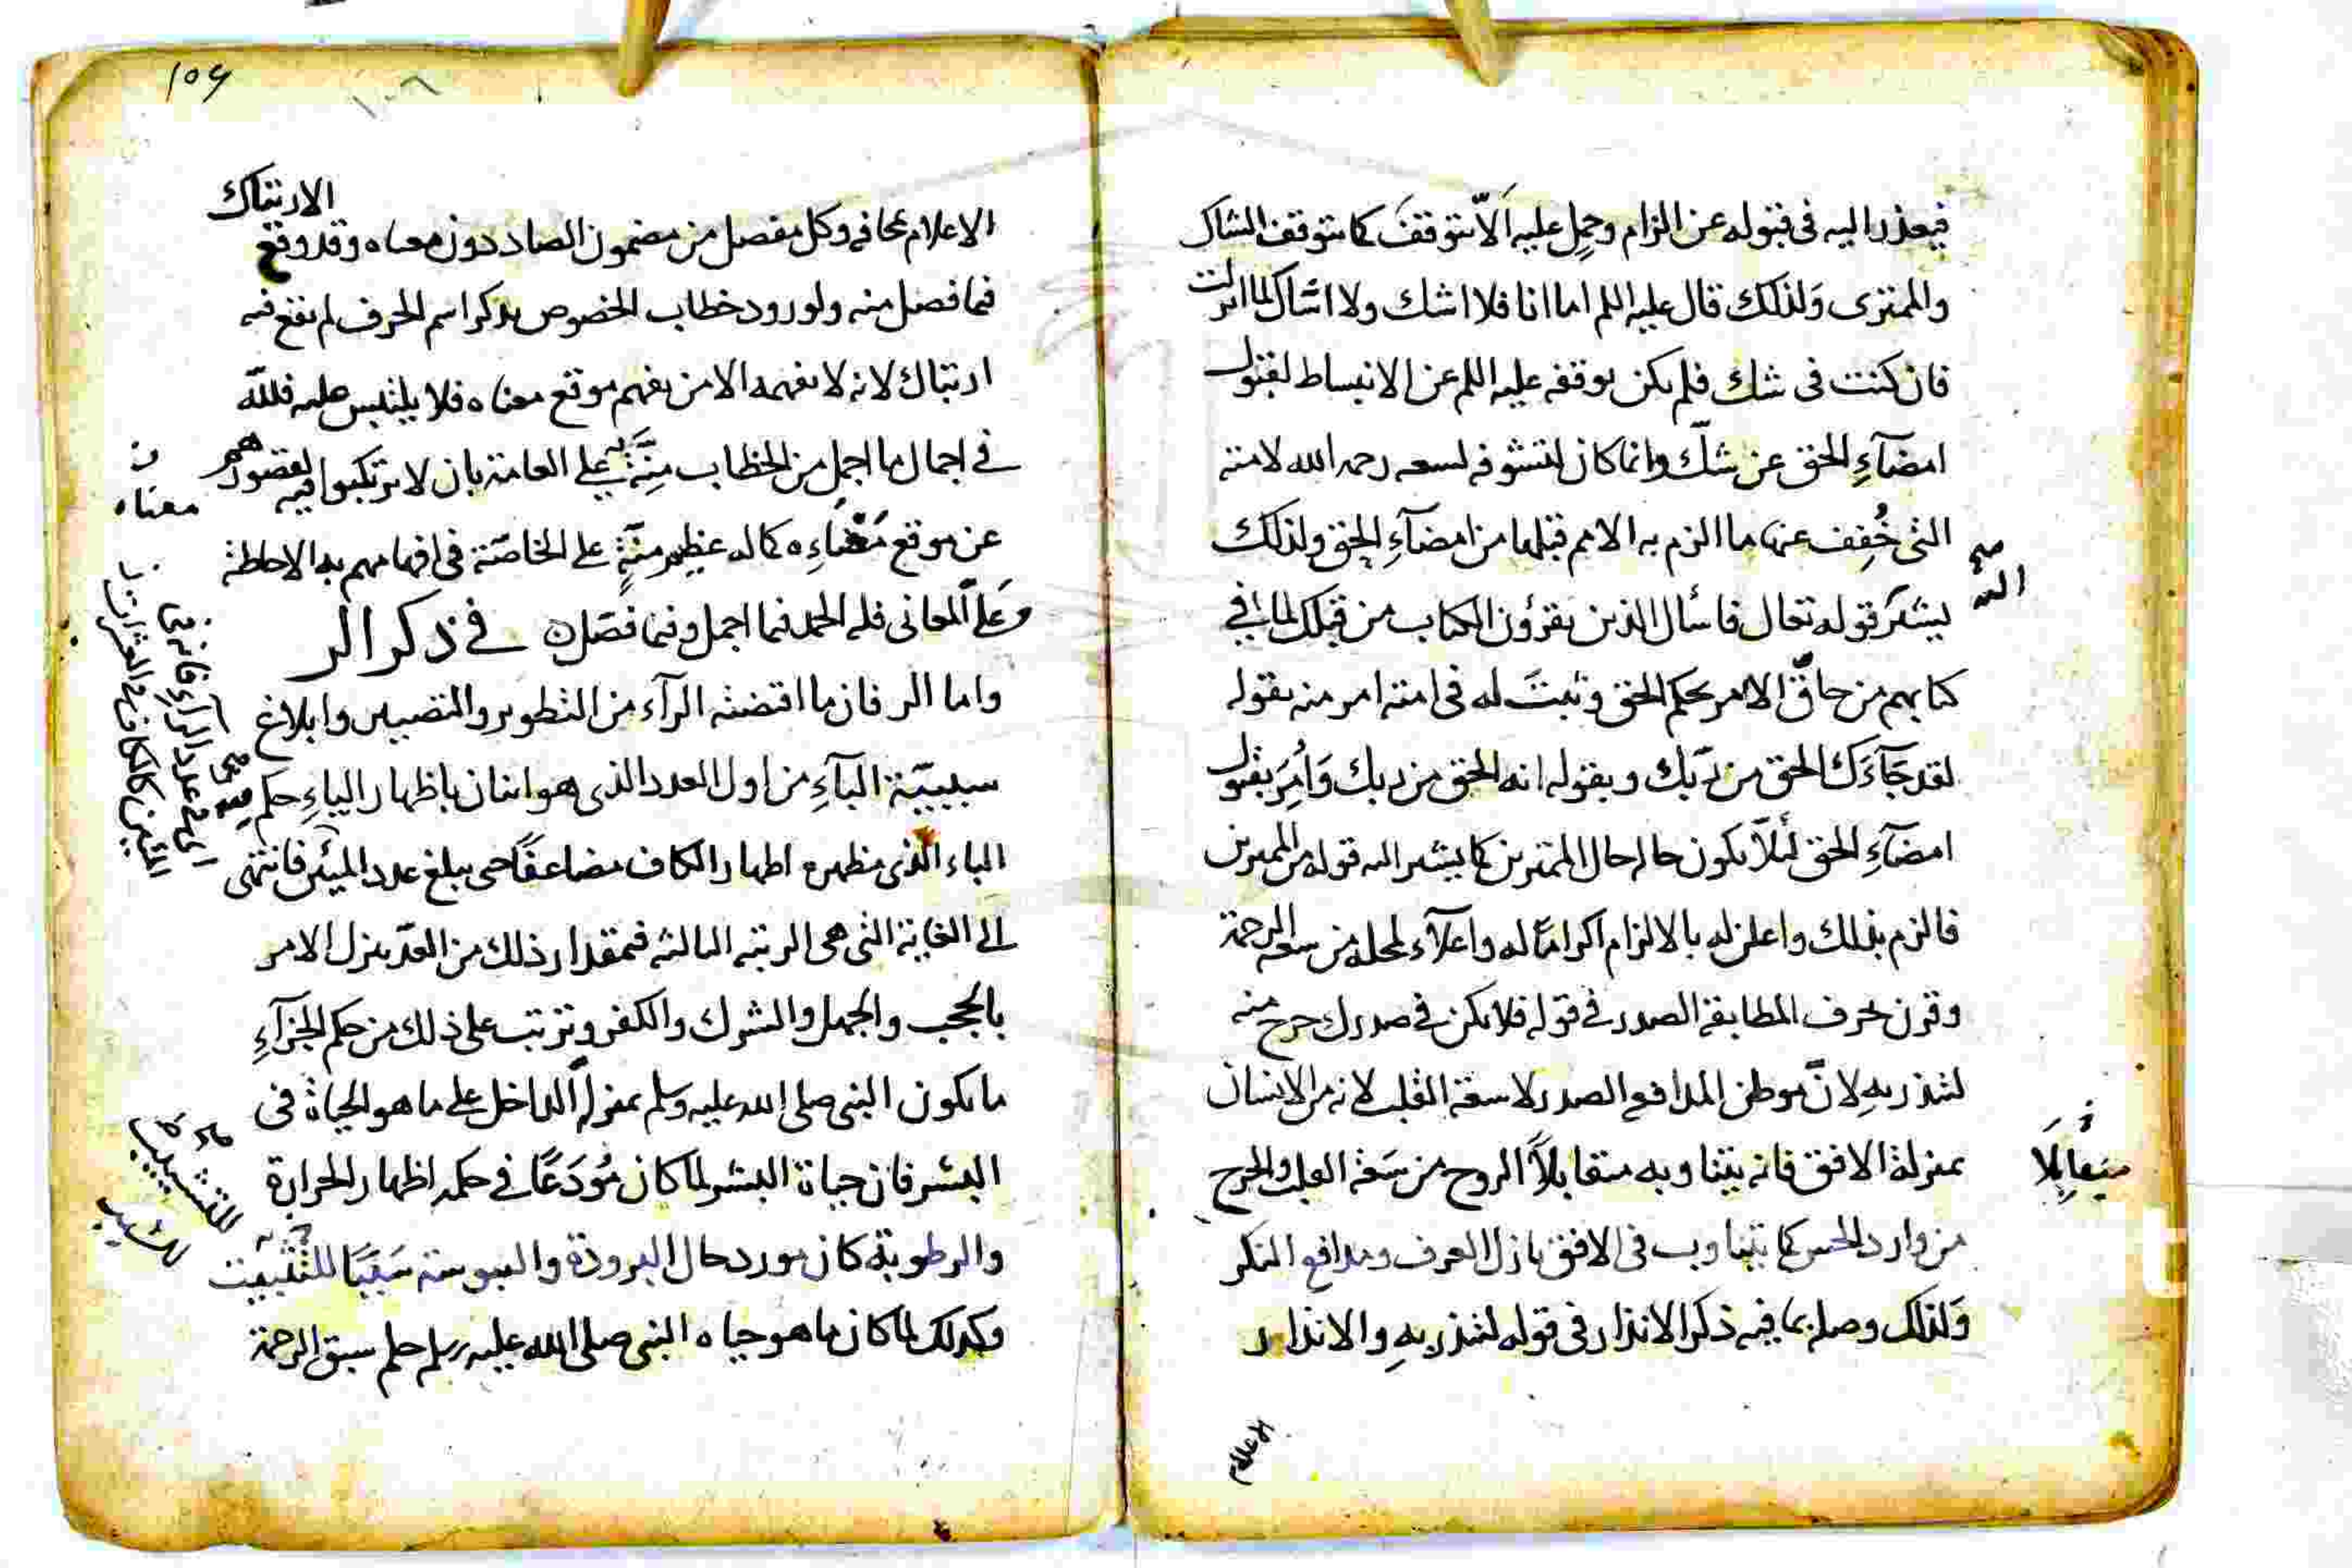 فيعذر اليه فى قبوله عن الزام وحمل عليه الّا يتوقف كما يتوقف الشاك
والممترى ولذلك قال عليه السلم اما انا فلا اشك ولا اشاك لما انزلت
فان كنت فى شك فلم يكن توقفه عليه السلم عن الانبساط لقبول
امضآءِ الحق عن شكّ وانما كان لتشوفه لسعه رحمه الله لامته
التى خُفِف عنها ما الزم به الامم قبلها من امضآءِ الحق ولذلك
صح اليه
يشير قوله تعالى فاسأل الذين يقرؤن الكتاب من قبلك لما فى
كتابهم من حاقّ الامر بحكم الحق وثبت له فى امته امر منه بقوله
لقد جَآءَك الحق من رّبك وبقوله انه الحق من ربك وَامُِر بقبول
امضآءِ الحق لئلّا يكون حاله حال الممترين كما يشير اليه قوله من الممترين
فالزم بذلك واعلن له بالالزام اكرامًا له واعلآء لمحله من سعه الرحمة
وقرن بحرف المطابقة الصدر فى قوله فلا يكن فى صدرك حرج منه
لتنذر بهِ لانّ موطن المدافع الصدر لا سعة القلب لانه من الانسان
بمنزلة الافق فانه يتناوبه متقابلاً الروح من سَعَة القلب والحرج
متقابِلَا
من وارد الحس كما يتناوب فى الافق نازل العرف ومدافع المنكر
وَلذلك وصله بما فيه ذكر الانذار فى قوله لتنذر بهِ والانذار
الاعلام
109
الارتباك
الاعلام بمخافه وكل مفصل من مضمون الصاد دون معناه وقد وقع
فيما فصل منه ولورود خطاب الخصوص بذكر اسم الحرف لم يقع فيه
ارتباك لانه لا يفهمه الا من يفهم موقع معناه فلا يلتبس عليه فللّه
فى اجمال ما اجمل من الخطاب مِنّةٌ على العامة بان لا يرتكبوا فيه لقصورهم
ن معناه
عن موقع مَعْناءِه كما له عظيم منّةٍ على الخاصّة فى افهامهم به الاحاطة
وَعَلىّ المعانى فله الحمد فيما اجمل وفيما فصّل ه فى ذكر الر
واما الر فان ما اقتضته الرآء من التطوير والتصيير وابلاغ
سببيّة البآءِ من اول العدد الذى هو اثنان باظهار الياءِ حكم
الباء الذى مظهره اظهار الكاف مضاعفًا حتى يبلغ عدد الميئين فانتهى
الى الغاية التى هى الرتبه الثالثه فبمقدار ذلك من العدّ ينزل الامر
بالحجب والجهل والشرك والكفر وترتب على ذلك من حكم الجزآءِ
ما يكون النبى صلى الله عليه وسلم بمنزلة الداخل على ما هو الحياة فى
البشر فان حياة البشر لما كان مُودَعًا فى حكمه اظهار الحرارة
والرطوبة كان مورد حال البرودة واليبوسة سَببًا للتثبيت
للتشبيب
وكذلك لما كان ما هو حياه النبى صلى الله عليه وسلم حلم سبق الرحمة